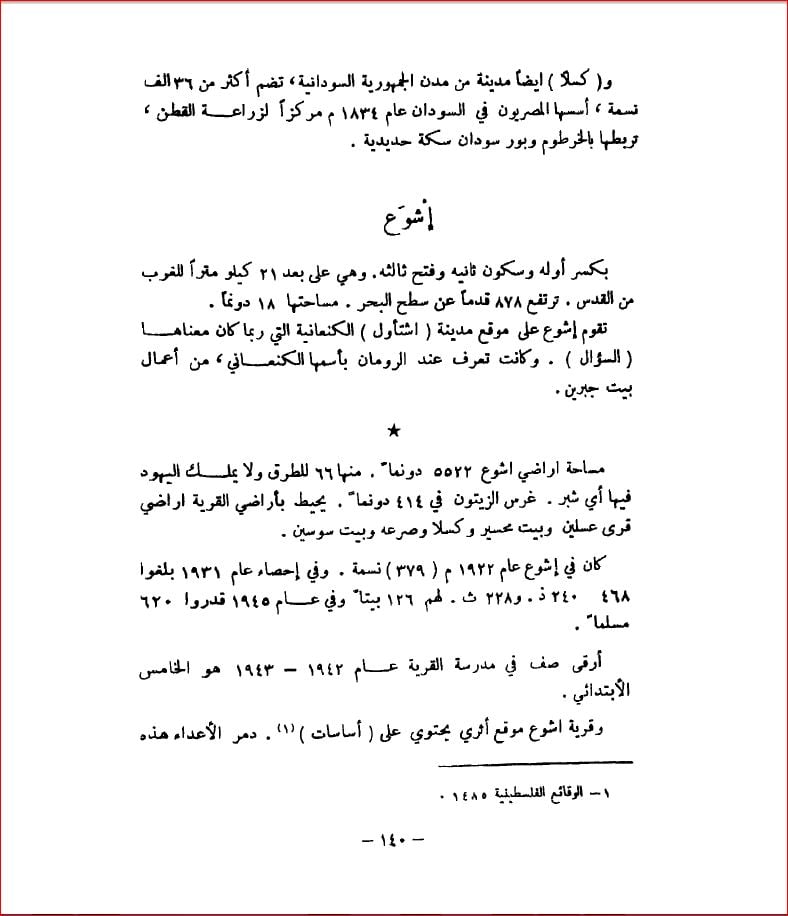 و( كسلا ) ايضاً مدينة من مدن الجمهورية السودانية، تضم أكثر من ٣٦ الف
نسمة ، أسسها المصريون في السودان عام ١٨٣٤ م مركزاً لزراعة القطن ،
تربطها بالخرطوم وبور سودان سكة حديدية .
إشوَع
بكسر أوله وسكون ثانيه وفتح ثالثه. وهي على بعد ٢١ كيلو متراً للغرب
من القدس . ترتفع ٨٧٨ قدماً عن سطح البحر . مساحتها ١٨ دونماً .
تقوم إشوع على موقع مدينة ( اشتأول ) الكنعانية التي ربما كان معناها
( السؤال ) . وكانت تعرف عند الرومان بأسمها الكنعاني، من أعمال
بيت جبرين .
★
مساحة اراضي اشوع ٥٥٢٢ دونماً . منها ٦٦ للطرق ولا يملك اليهود
فيها أي شبر . غرس الزيتون في ٤١٤ دونماً . يحيط بأراضي القرية اراضي
قرى عسلين وبيت محسير وكسلا وصرعه وبيت سوسين .
كان في إشوع عام ١٩٢٢ م ( ٣٧٩ ) نسمة . وفي إحصاء عام ١٩٣١ بلغوا
٤٦٨ ٢٤٠ ذ . و٢٢٨ ث . لهم ١٢٦ بيتاً وفي عام ١٩٤٥ قدروا ٦٢٠
مسلماً .
أرقى صف في مدرسة القرية عام ١٩٤٢ – ١٩٤٣ هو الخامس
الأبتدائي .
وقرية اشوع موقع أثري يحتوي على ( أساسات ) (١) . دمر الأعداء هذه
١– الوقائع الفلسطينية ١٤٨٥ .
– ١٤٠ –